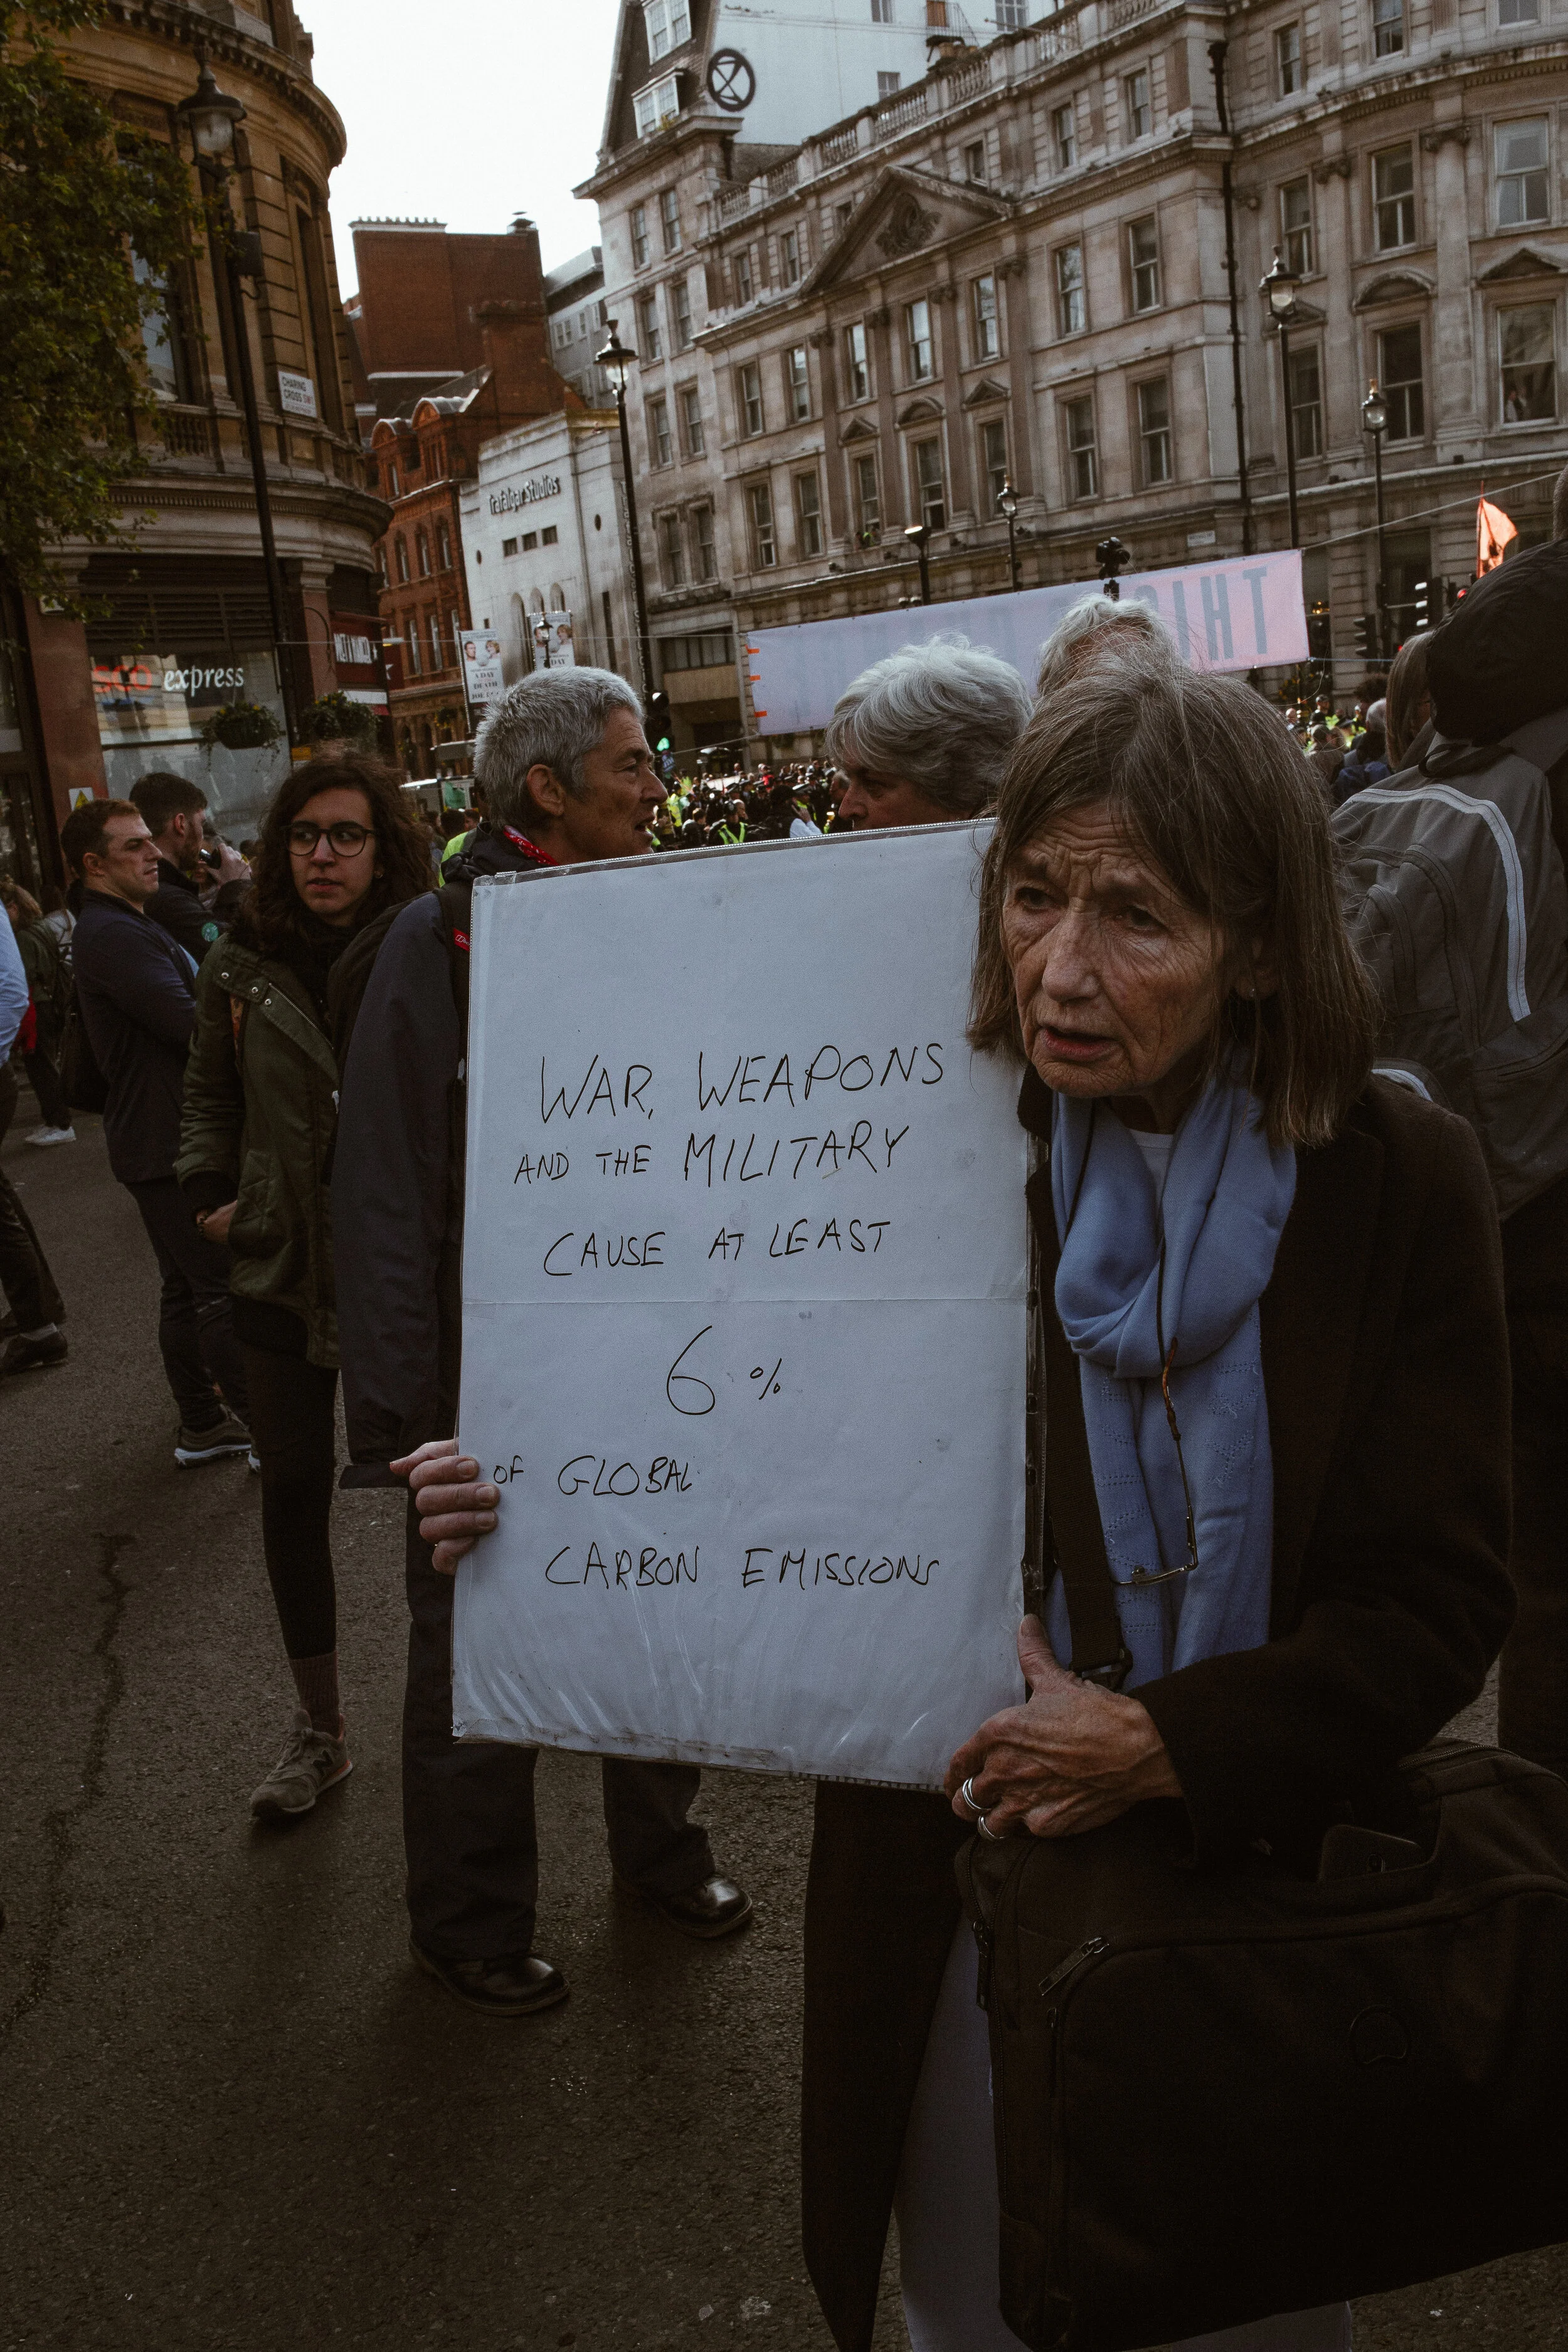 CHARING
CROSS SW1
Trafalgar Studios
express
WAR, WEAPONS
AND THE MILITARY
CAUSE AT LEAST
6 %
OF GLOBAL
CARBON EMISSIONS